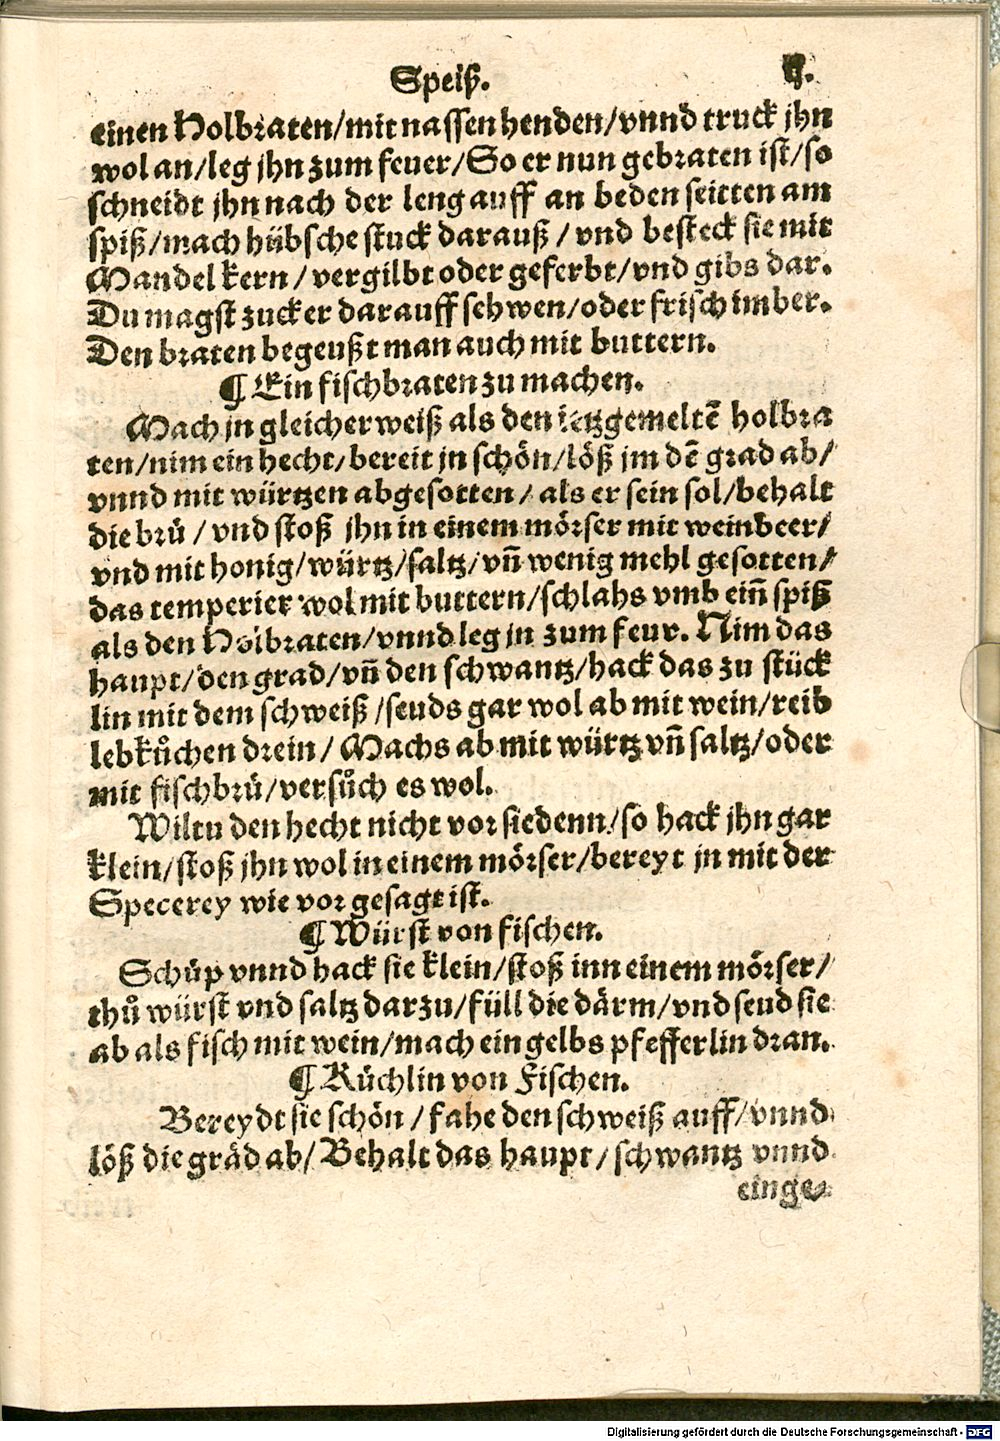 Speiß.
einen Holbraten/mit nassen henden/vnnd truck jhn
wol an/leg jhn zum feuer/So er nun gebraten ist/so
schneidt jhn nach der leng auff an beden seitten am
spiß/mach hübsche stuck darauß/vnd besteck sie mit
Mandel kern/vergilbt oder geferbt/vnd gibs dar.
Du magst zucker darauff sehwen/oder frisch imber.
Den braten begeußt man auch mit buttern.
¶ Ein fischbraten zu machen.
Mach jn gleicher weiß als den ietzgemeltē holbra
ten/nim ein hecht/bereit jn schön/löß jm dē grad ab/
vnnd mit würtzen abgesotten/als er sein sol/behalt
die brü/vnd stoß jhn in einem mörser mit weinbeer/
vnd mit honig/würtz/saltz/vñ wenig mehl gesotten/
das temperier wol mit buttern/schlahs vmb eiñ spiß
als den Holbraten/vnnd leg jn zum feur. Nim das
haupt/den grad/vñ den schwantz/hack das zu stück
lin mit dem schweiß/seuds gar wol ab mit wein/reib
lebkůchen drein/Machs ab mit würtz vñ saltz/oder
mit fischbrü/versůch es wol.
Wiltu den hecht nicht vor siedenn/so hack jhn gar
klein/stoß jhn wol in einem mörser/bereyt jn mit der
Specerey wie vor gesagt ist.
¶ Würst von fischen.
Schüp vnnd hack sie klein/stoß inn einem mörser/
thů würst vnd saltz darzu/füll die därm/vnd seud sie
ab als fisch mit wein/mach ein gelbs pfefferlin dran.
¶ Küchlin von Fischen.
Bereydt sie schön/fahe den schweiß auff/vnnd
löß die gräd ab/Behalt das haupt/schwantz vnnd
einge-
Digitalisierung gefördert durch die Deutsche Forschungsgemeinschaft - DFG